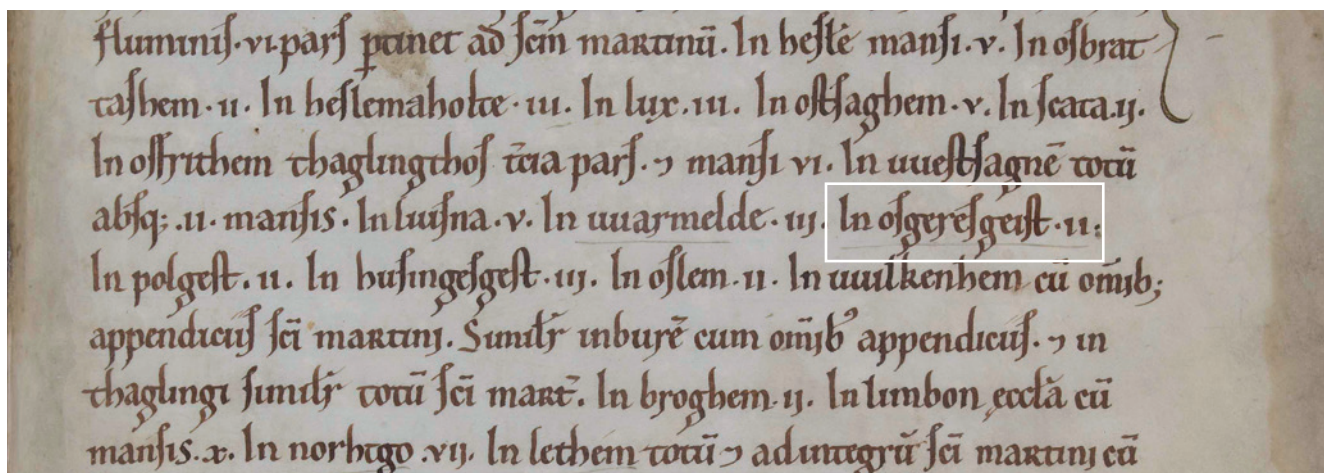 fluminis·vi·pars ꝑtinet ad sc̄m martinū. In hesłē mansi·v· In osbrat
tashem·ii· In heslemaholte·iii· In lux·iii· In ostsaghem·v· In scata·ij·
In osfrithem thaglingthos t̄cia pars·⁊ mansi vi· In uuestsagnē totū
absq;·ii· mansis· In luisna·v· In uuarmelde·iij· In osgeresgeist·ii:
In polgest·ii· In husingesgest·iij· In oslem·ii· In uuilkenhem cū om̄ib;
appendiciis sc̄i martini. Similr̄ inburē cum om̄ibꝰ appendiciis·⁊ in
thaglingi similr̄ totū sc̄i mart̄. In broghem·ij· In limbon ęccłā cū
mansis·x· In norhtgo·vij· In lethem totū ⁊ ad integrū sc̄i martini cū